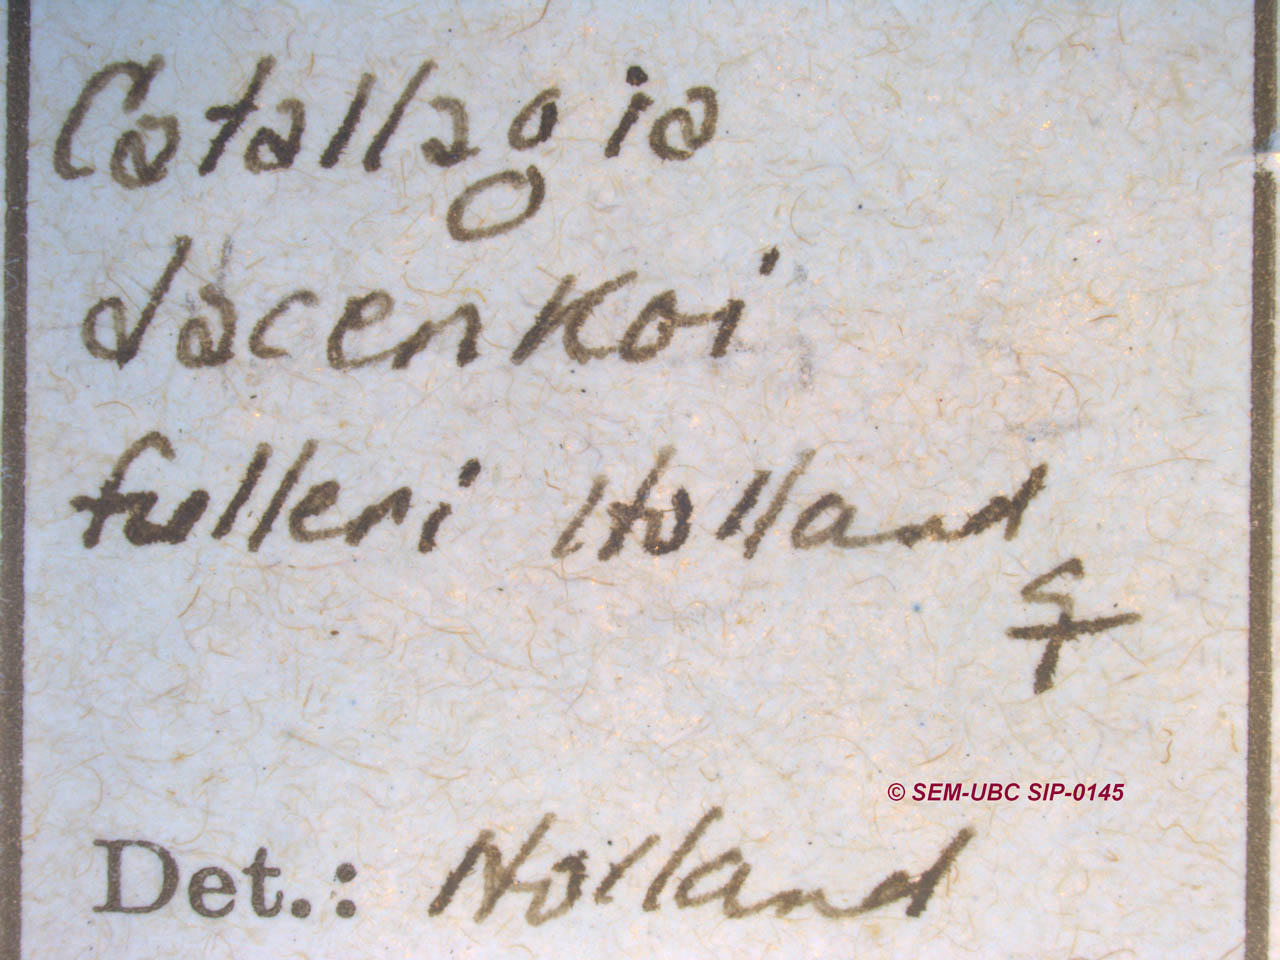 Catallagia
dacenkoi
fulleri Holland
♀
© SEM-UBC SIP-0145
Det.: Holland